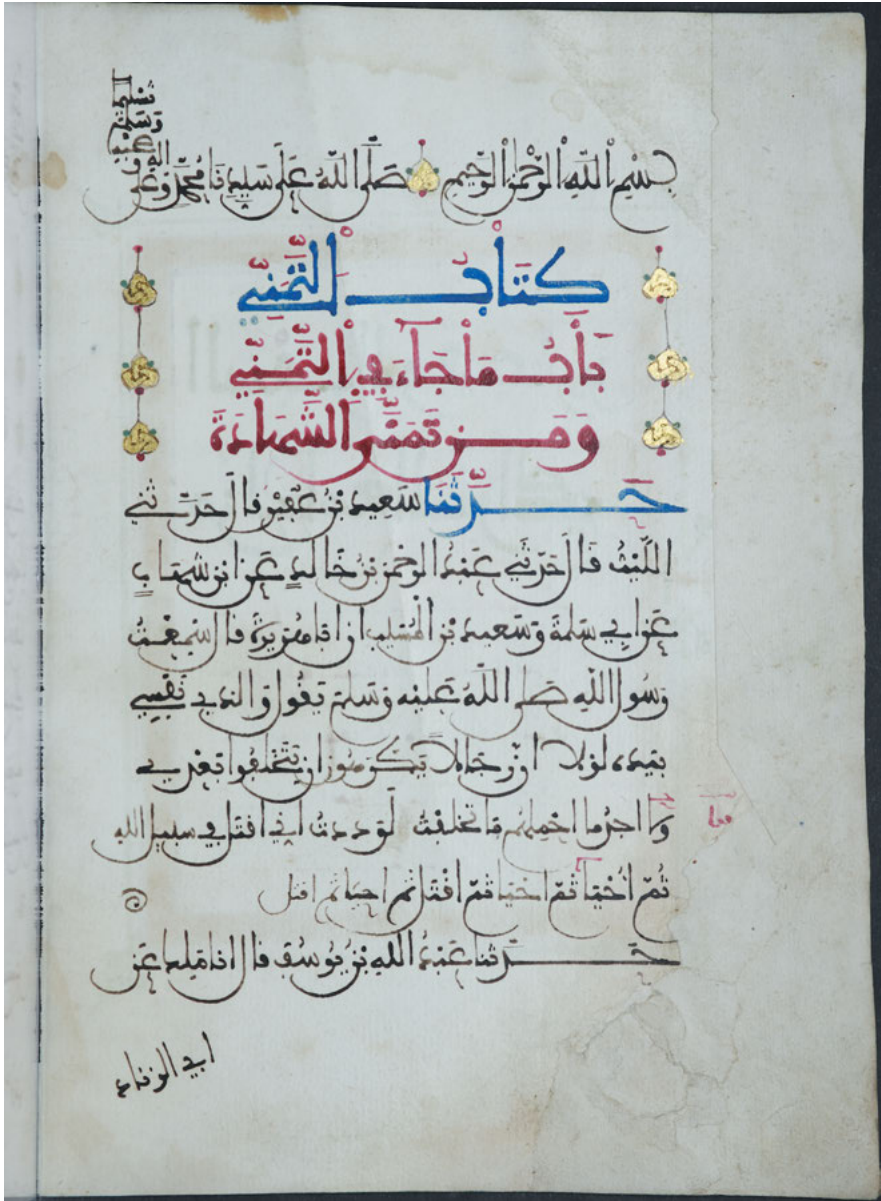 بسم الله الرحمن الرحيم صلى الله على سيدنا محمد وعلى
اله
وصحبه
وسلم
تسليما
كتاب التمني
باب ما جاء في التمني
ومن تمنى الشهادة
حدثنا سعيد بن عفير قال حدثني
الليث قال حدثني عبد الرحمن بن خالد عن ابن شهاب
عن ابي سلمة وسعيد بن المسيب ان ابا هريرة قال سمعت
رسول الله صلى الله عليه وسلم يقول والذي نفسي
بيده لولا ان رجالا يكرهون ان يتخلفوا بعدي
ولا اجد ما احملهم ما تخلفت لوددت اني اقتل في سبيل الله
ثم احيا ثم احيا ثم اقتل ثم احيا ثم اقتل
حدثنا عبد الله بن يوسف قال انا ملك عن
ابي الزناد